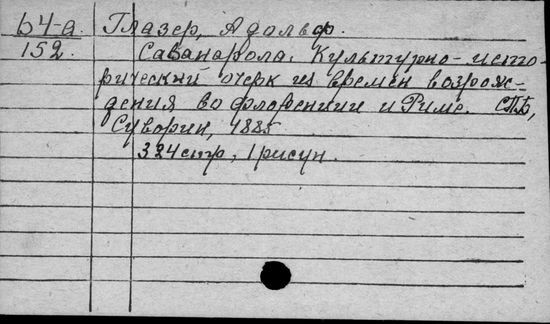 64-а. Глазер, Адольф.
152. Саванарола. Культурно-исто-
рический очерк из времен возрож-
дения во Флоренции и Риме. СПБ,
Суворин, 1885
324 стр, 1 рисун.